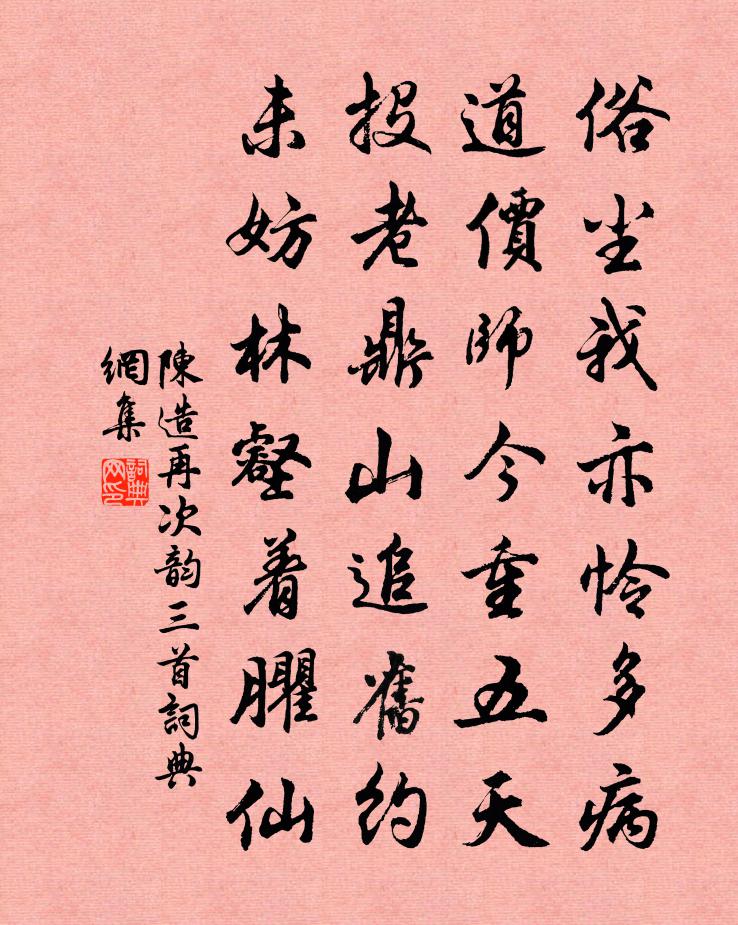 俗尘我亦怜多病
道價師今重五天
投老鼎山追舊约
未妨林壑着臞仙
陳造再次韵三首詞典
網集
詞典网印